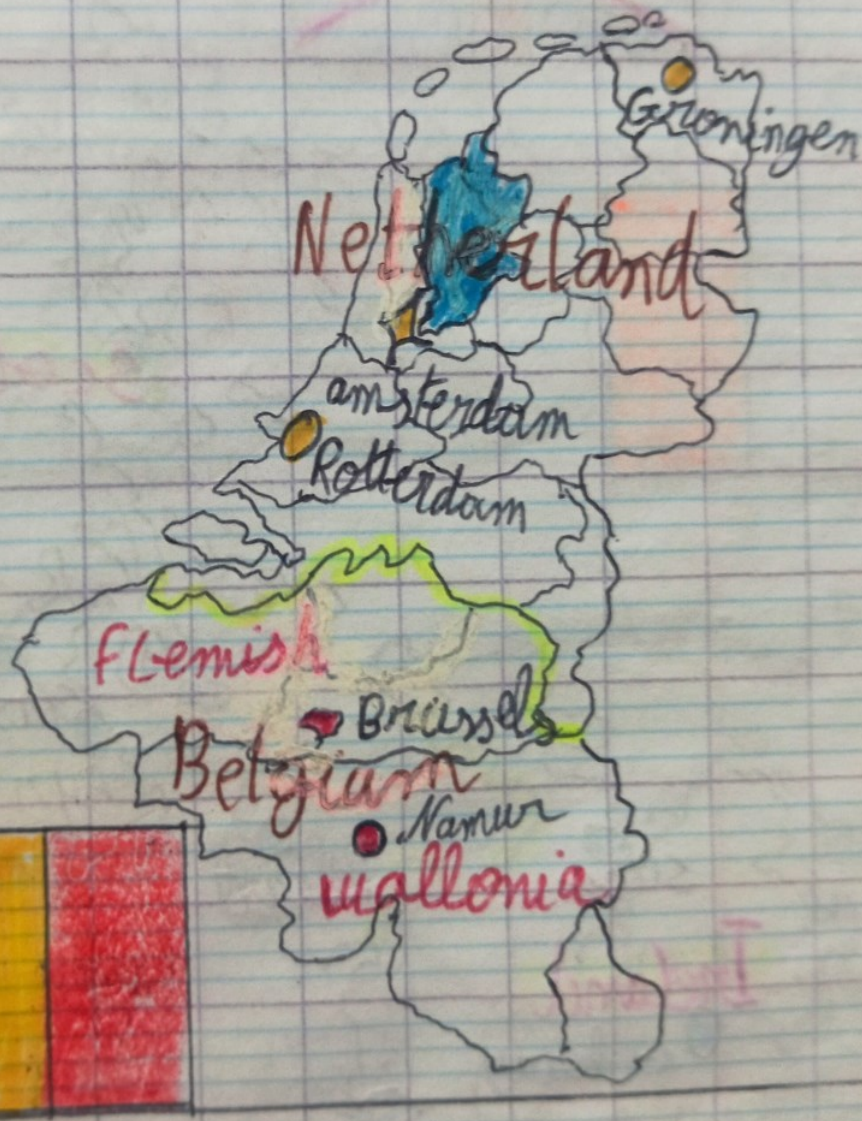 Groningen
Netherland
amsterdam
Rotterdam
flemish
Brussels
Belgium
Namur
wallonia